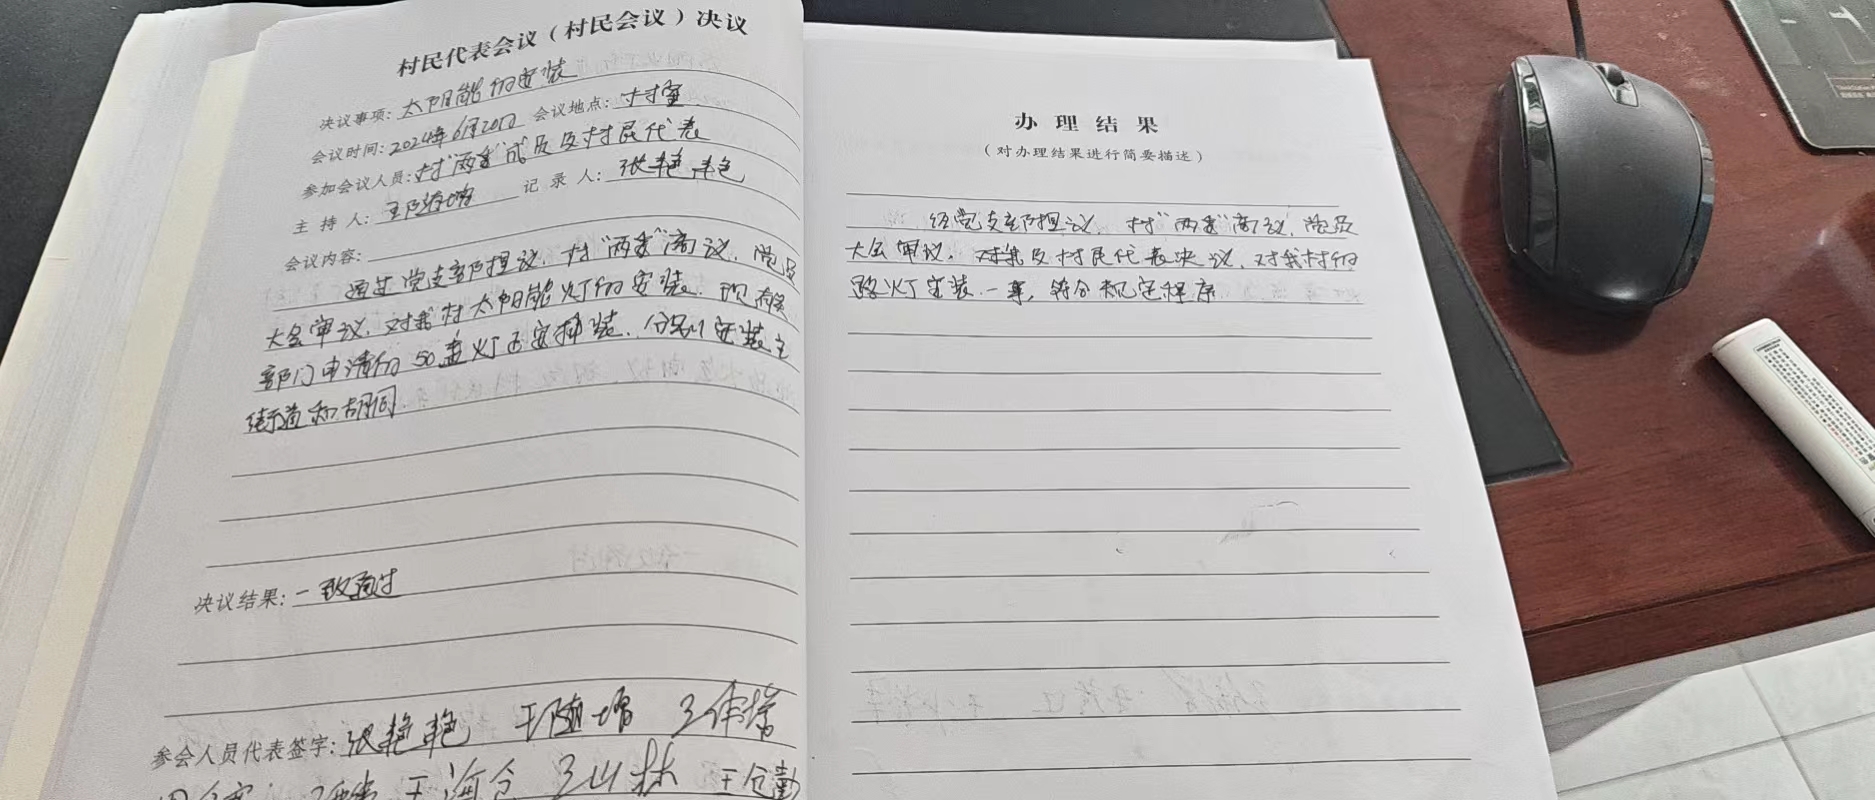 村民代表会议（村民会议）决议
决议事项：太阳能的安装
会议时间：2024年6月20日 会议地点：村室
参加会议人员：村"两委"成员及村民代表
主持人：王随增 记录人：张艳艳
会议内容：
通过党支部提议、村"两委"商议、党员
大会审议、对我村太阳能灯的安装、现有
部门申请的50盏灯 安装、分别安装主
街道和胡同
决议结果：一致通过
参会人员代表签字：张艳艳 王随增
王海仓 王山林
办理结果
（对办理结果进行简要描述）
经党支部提议、村"两委"商议、党员
大会审议、村民代表决议、对我村的
路灯安装一事，符合规定程序